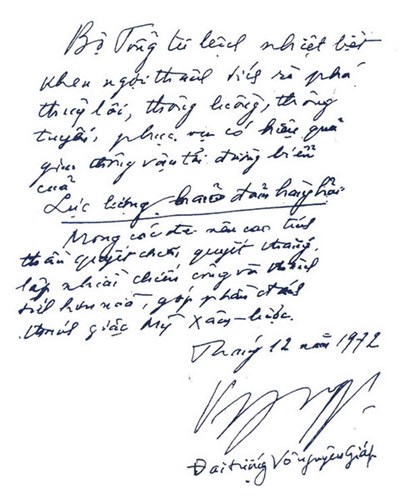 Bộ Tổng tư lệnh nhiệt liệt
khen ngợi thành tích rà phá
thuỷ lôi, thông luồng, thông
tuyến, phục vụ có hiệu quả
giao thông vận tải đường biển
của
Lực lượng bảo đảm hàng hải
Mong các đ/c nêu cao tinh
thần quyết chiến, quyết thắng,
lập nhiều chiến công và thành
tích hơn nữa, góp phần đánh
thắng giặc Mỹ xâm-lược.
Tháng 12 năm 1972
Đại tướng Võ nguyên Giáp